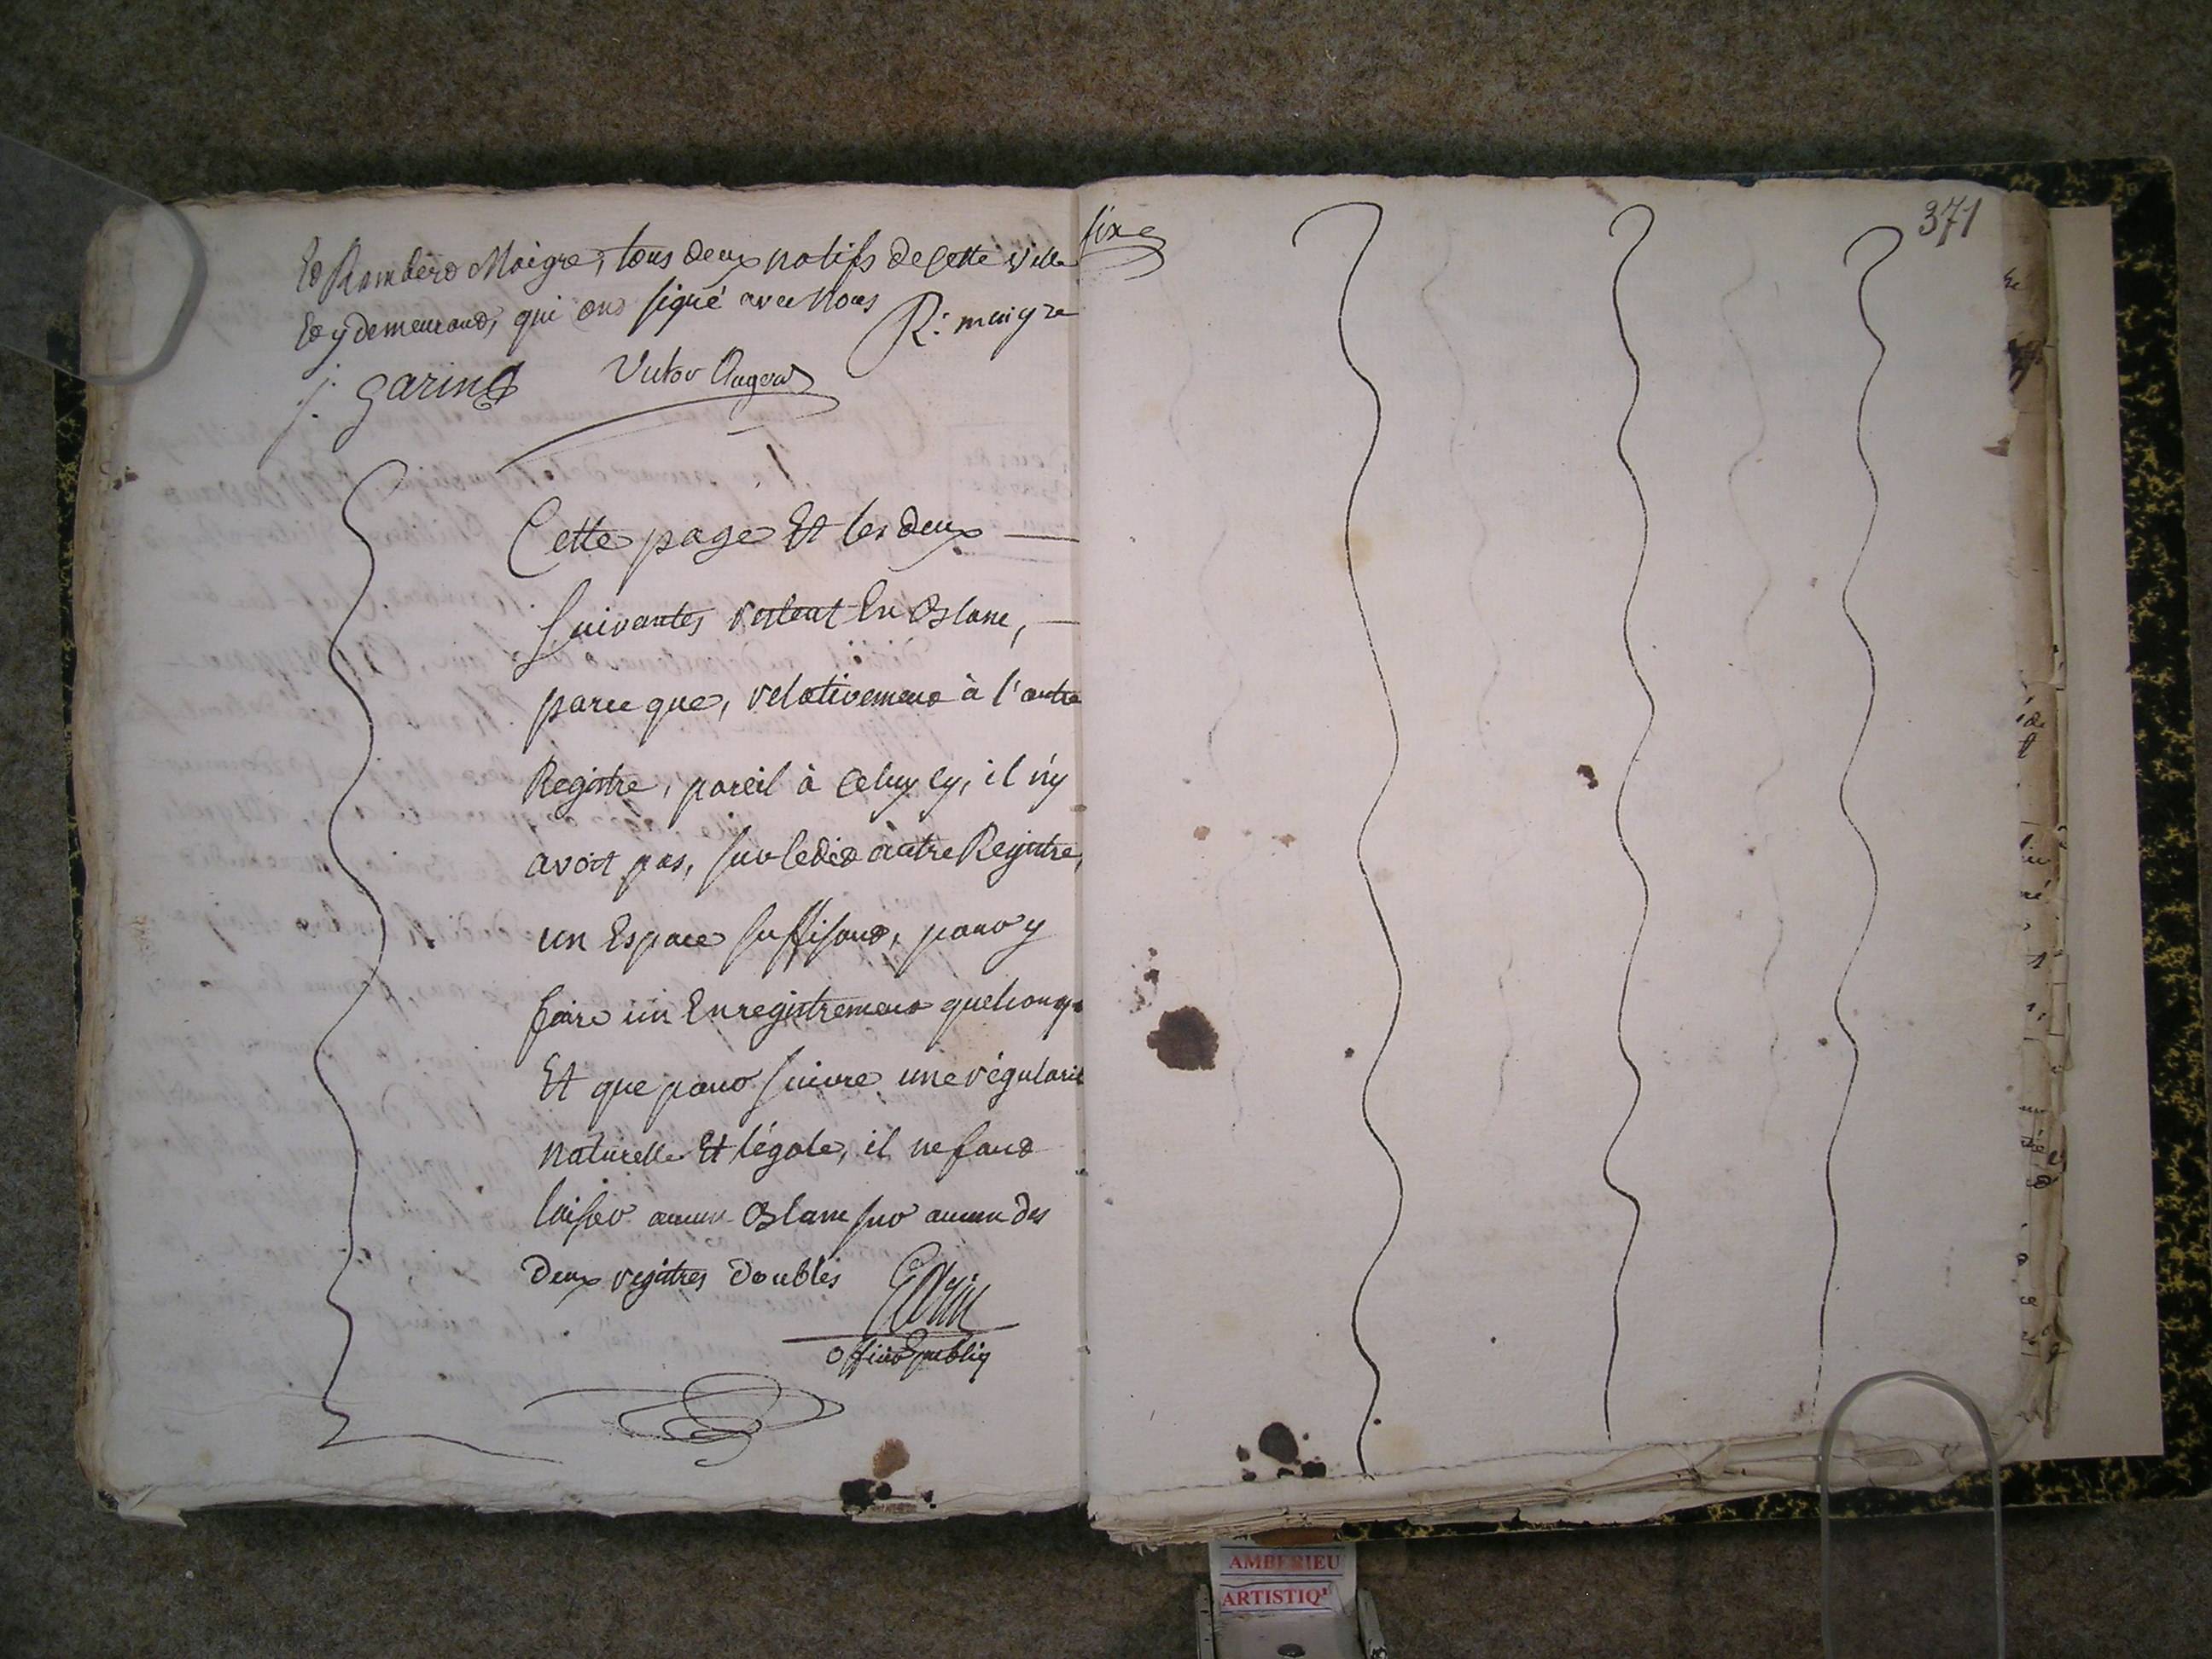 Et Rambert Maigre, tous deux natifs de Cette ville
Et y demeurant, qui ont signé avec Nous
R: maigre
j. garin
Victor Augerd
Cette page Et les deux
Suivantes restent En Blanc,
parce que, relativement à l'autre
Registre, pareil à Celuy Cy, il n'y
avoit pas, sur ledit autre Registre,
un Espace suffisant, pour y
faire un Enregistrement quelconque
Et que pour suivre une régularité
Naturelle Et légale, il ne faut
laisser aucun Blanc sur aucun des
Deux registres Doubles
officier public
six
371
AMBERIEU
ARTISTIQ'